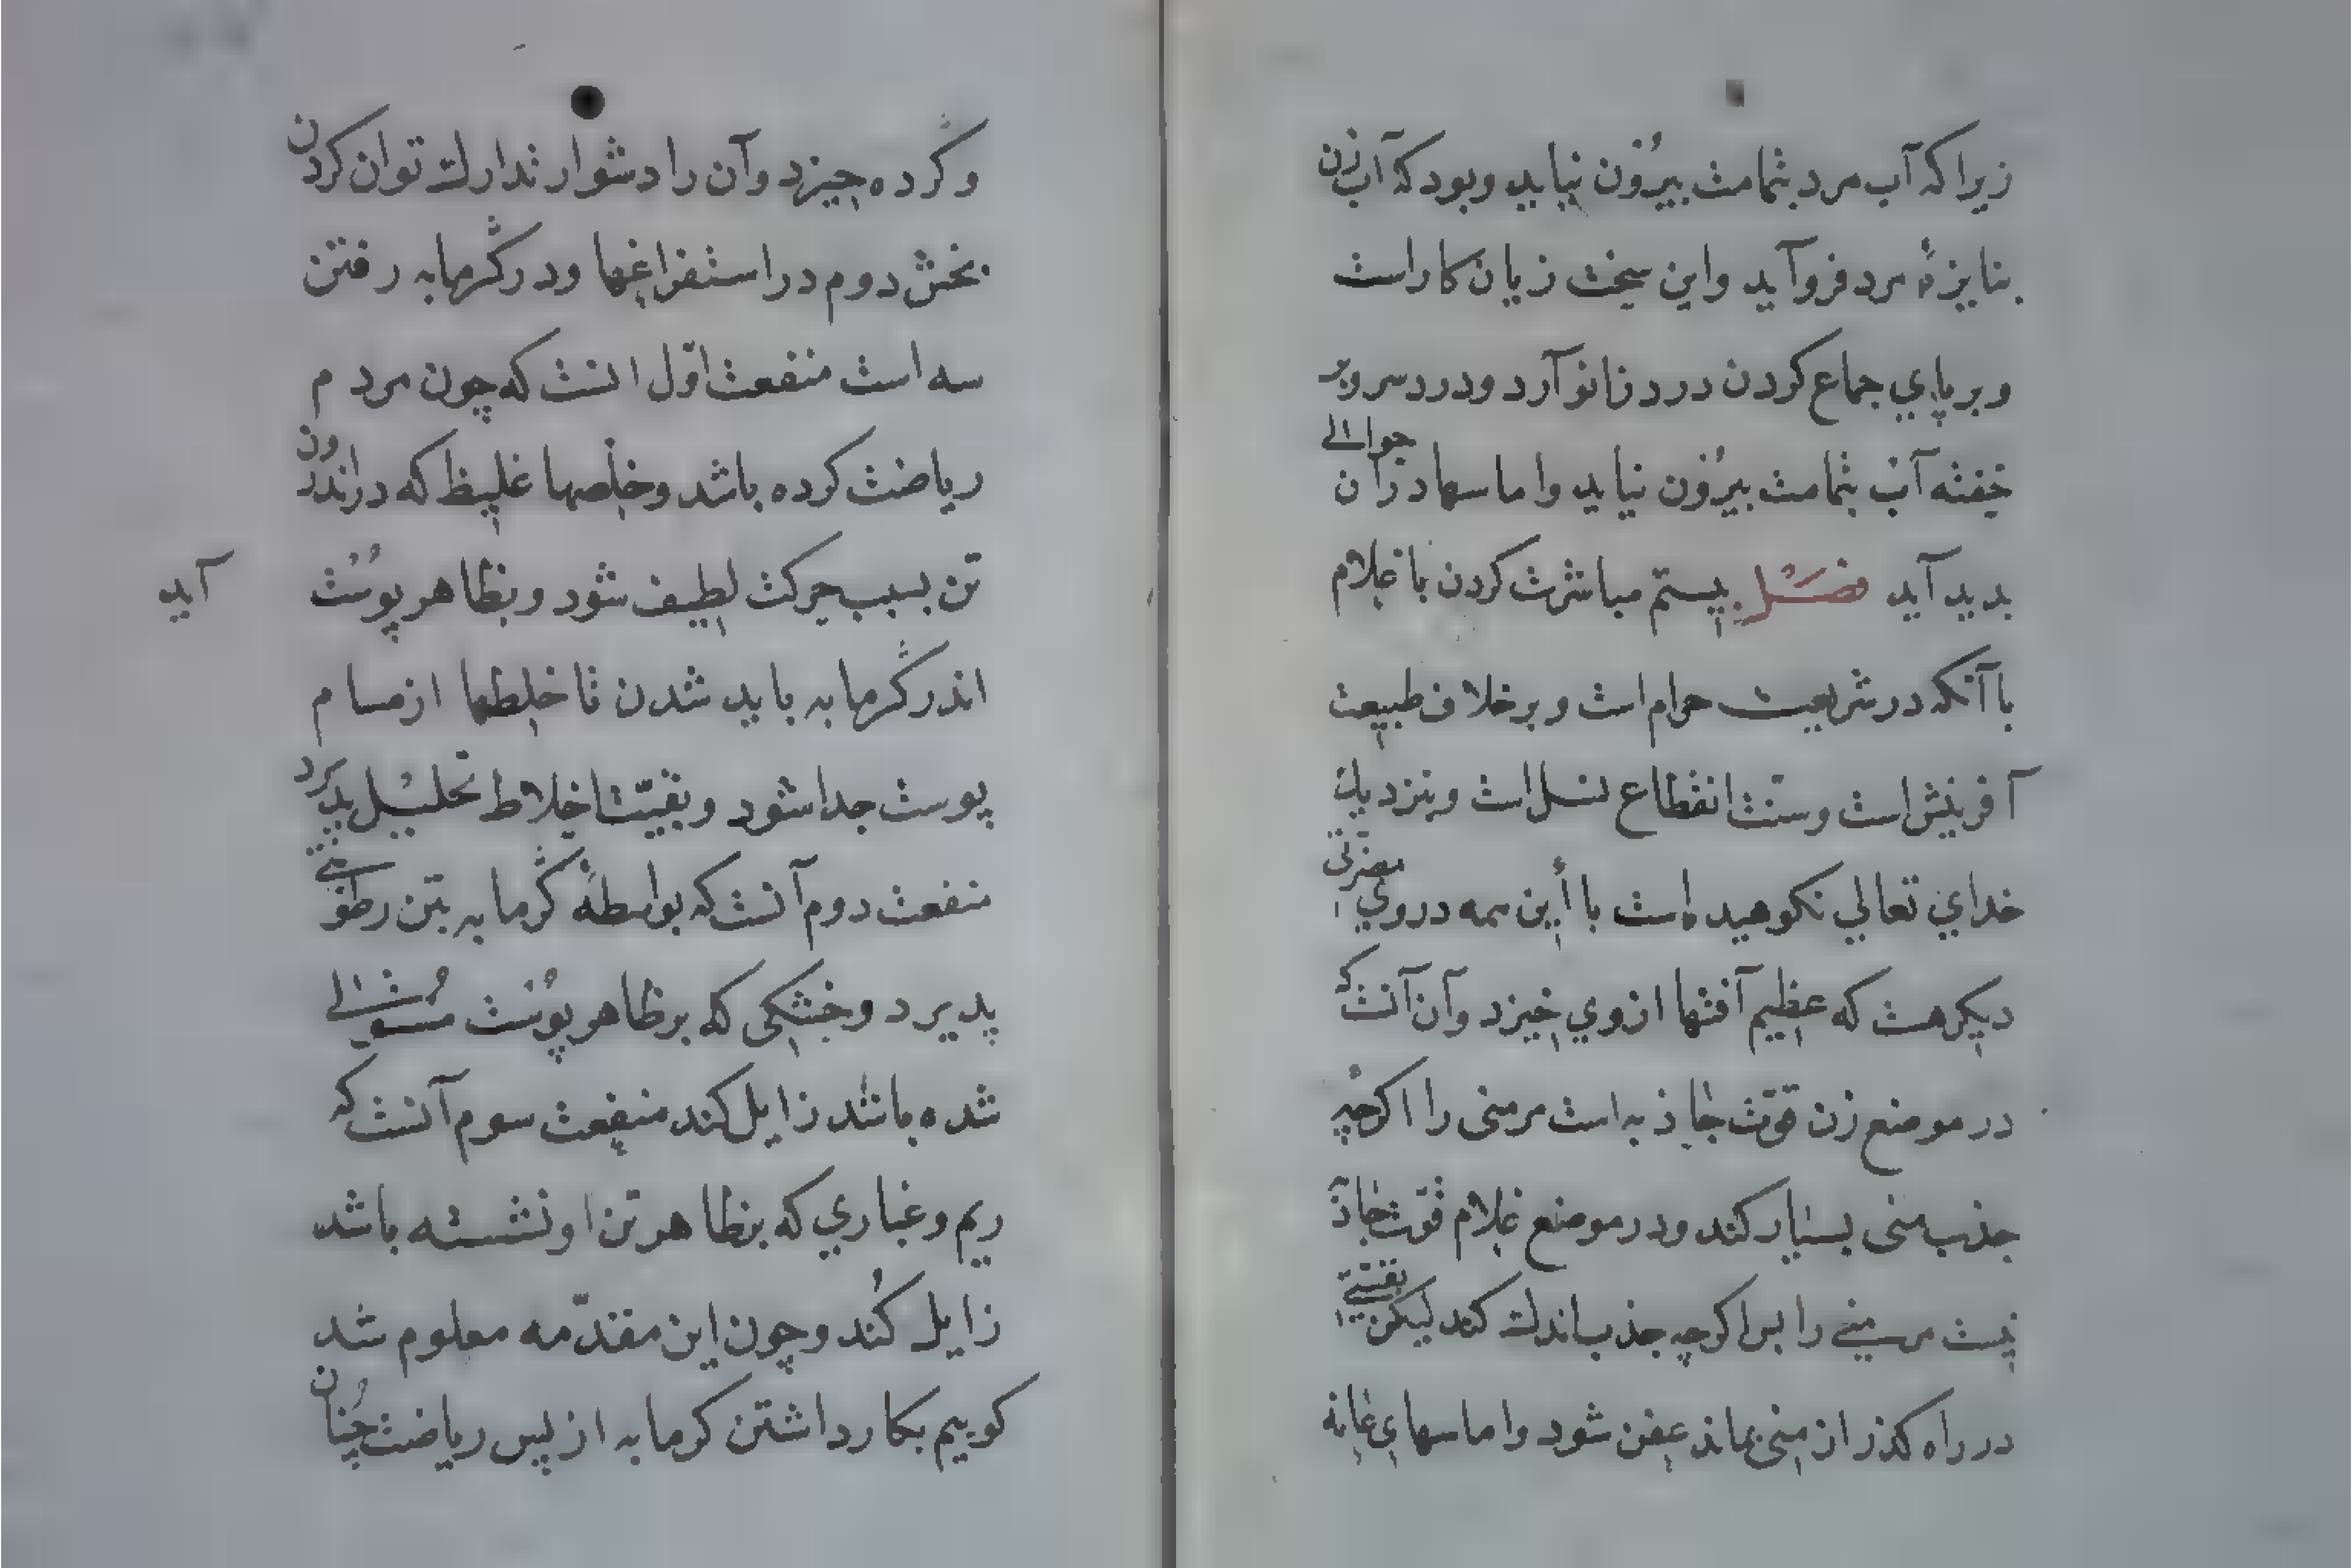 زیرا که آب مرد بتمامت بیرون نیاید وبود که آب زن
بنایزهٔ مرد فروآید واین سخت زیان کاراست
وبرپاي جماع کردن درد زانو آرد ودرد سر وبر
خفته آب بتمامت بیرون نیاید واماسها در آن حوالی
بدید آید فصل بیستم مباشرت کردن با غلام
با آنکه در شریعت حرام است وبرخلاف طبیعت
آفرینش است وسنت انقطاع نسل است وبنزدیك
خداي تعالي نکوهیده است با أین همه دروي مضرتی
دیگر هست که عظیم آفتها ازوي خیزد وآن آنست که
در موضع زن قوّت جاذبه است مر منی را اگرچه
جذب منی بسیار کند ودر موضع غلام قوّت جاذبه
نیست مر منی را بس اگرچه جذب اندك کند لیکن بقیتی
در راه گذر از منی بماند عفن شود واماسهاي عانه
وگرده خیزد وآن را دشوار تدارك توان کردن
بخش دوم در استفراغها ودر گرمابه رفتن
سه است منفعت اوّل انست که چون مردم
ریاضت کرده باشد وخلطها غلیظ که در اندرون
تن بسبب حرکت لطیف شود وبظاهر پوست آید
اندر گرمابه باید شدن تا خلطها از مسام
پوست جدا شود وبقیّت اخلاط تحلیل پدیرد
منفعت دوم آنست که بواسطهٔ گرمابه بتن رطوبتی
پدیرد وخشکی که بر ظاهر پوست مستولی
شده باشد زایل کند منفعت سوم آنست که
ریم وغباري که بر ظاهر تن او نشسته باشد
زایل کُند وچون این مقدّمه معلوم شد
کوییم بکار داشتن کرمابه از پس ریاضت چنان